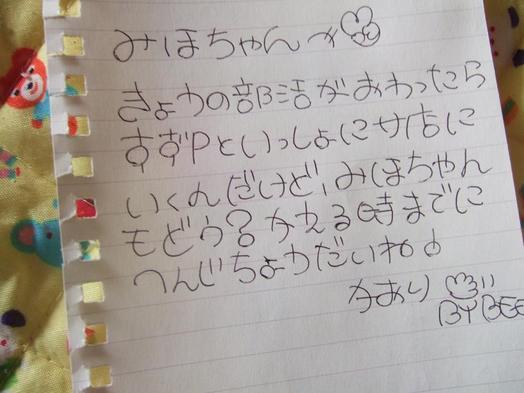 みほちゃんへ
きょうの部活がおわったら
すずPといっしょにサ店に
いくんだけど、みほちゃん
もどう?かえる時までに
へんじちょうだいね♪
かおり
BYBEE